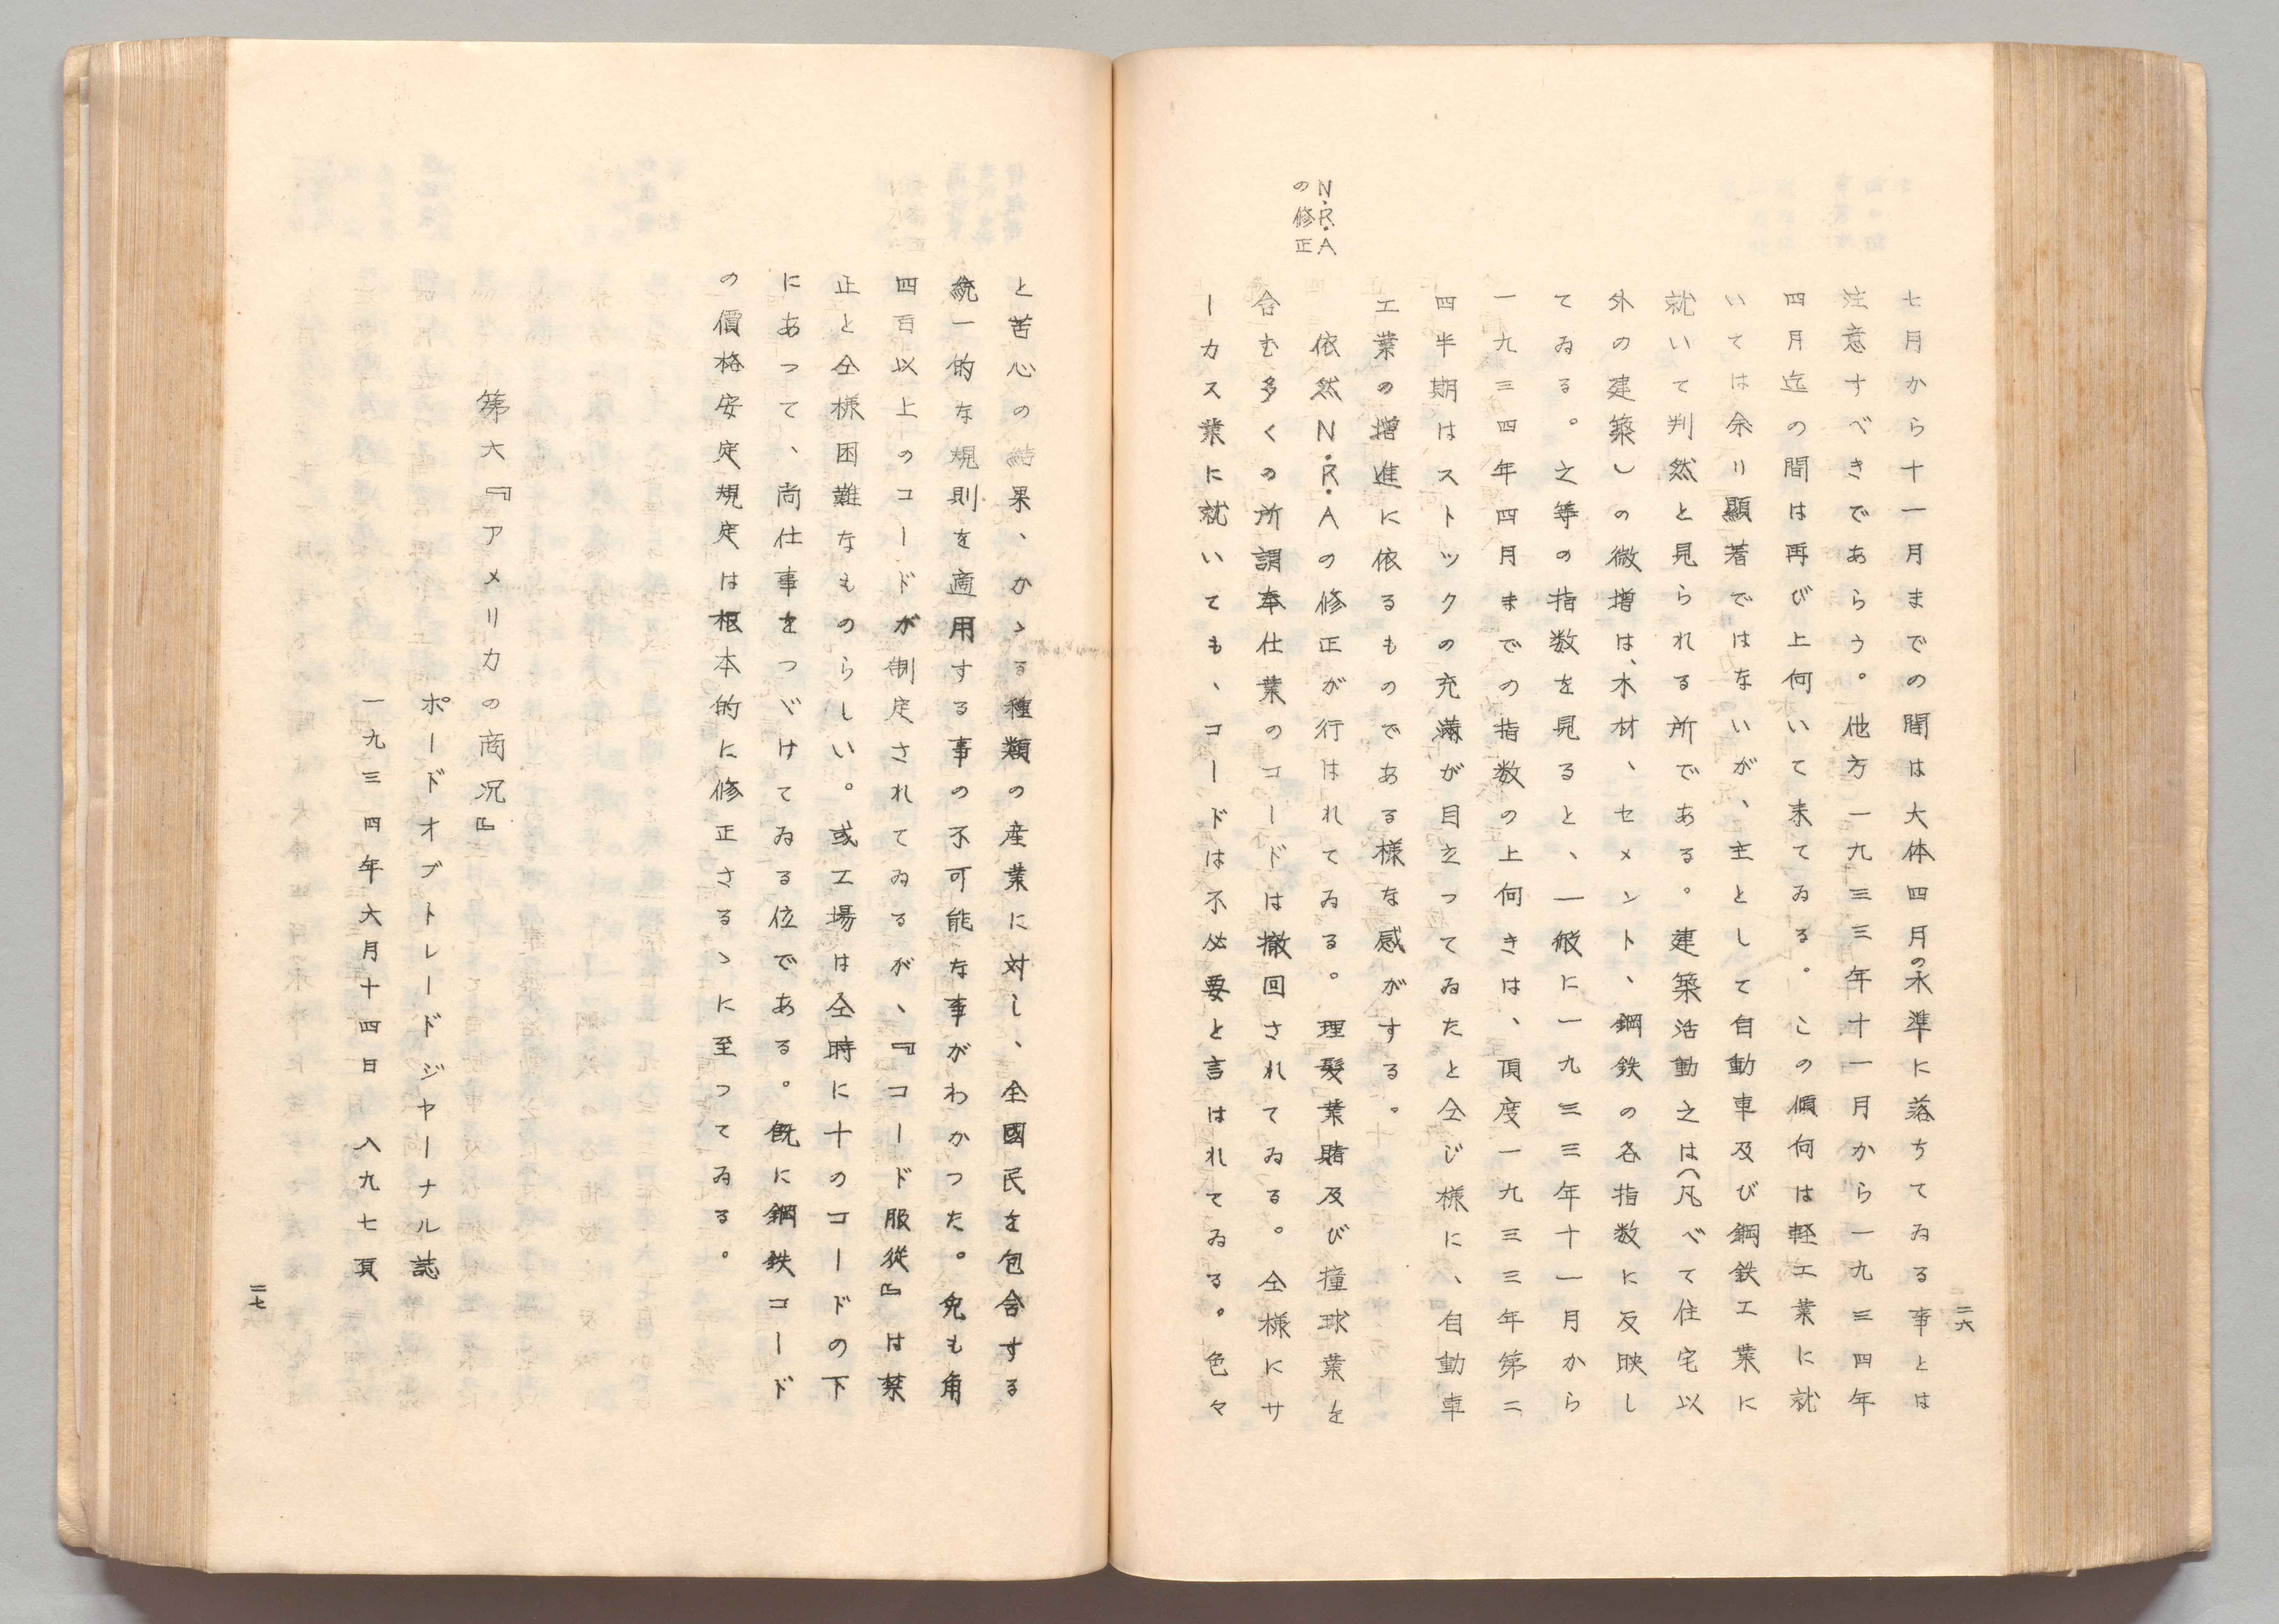 二六
七月から十一月までの間は大体四月の水準に落ちてゐる事とは
注意すべきであらう。他方一九三三年十一月から一九三四年
四月迄の間は再び上向いて来てゐる。この傾向は軽工業に就
いては余り顯著ではないが、主として自動車及び鋼鉄工業に
就いて判然と見られる所である。建築活動之は(凡べて住宅以
外の建築)の微増は、木材、セメント、鋼鉄の各指数に反映し
てゐる。之等の指数を見ると、一般に一九三三年十一月から
一九三四年四月までの指数の上向きは、頂度一九三三年第二
四半期はストックの充満が目立ってゐたと仝じ様に、自動車
工業の増進に依るものである様な感がする。
N.R.A
の修正
依然N.R.Aの修正が行はれてゐる。理髪業賭及び撞球業を
含む多くの所謂奉仕業のコードは撤回されてゐる。仝様にサ
ーカス業に就いても、コードは不必要と言はれてゐる。色々
と苦心の結果、かゝる種類の産業に対し、全國民を包含する
統一的な規則を適用する事の不可能な事がわかつた。兔も角
四百以上のコードが制定されてゐるが、『コード服従』は禁
止と仝様困難なものらしい。或工場は仝時に十のコードの下
にあって、尚仕事をつゞけてゐる位である。既に鋼鉄コード
の價格安定規定は根本的に修正さるゝに至ってゐる。
第六『アメリカの商況』
ボードオブトレードジャーナル誌
一九三四年六月十四日 八九七頁
二七